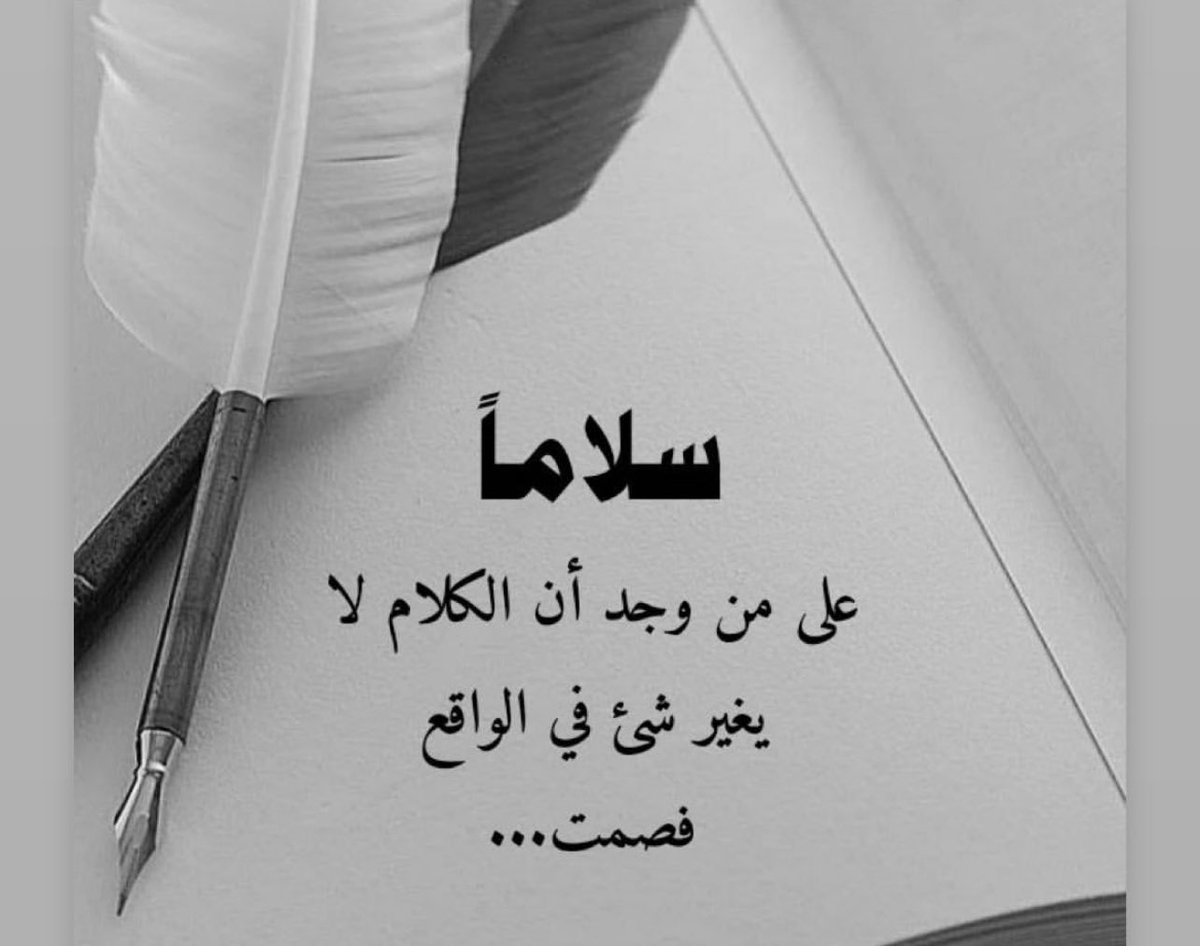 سلاماً
على من وجد أن الكلام لا
يغير شئ في الواقع
فصمت...